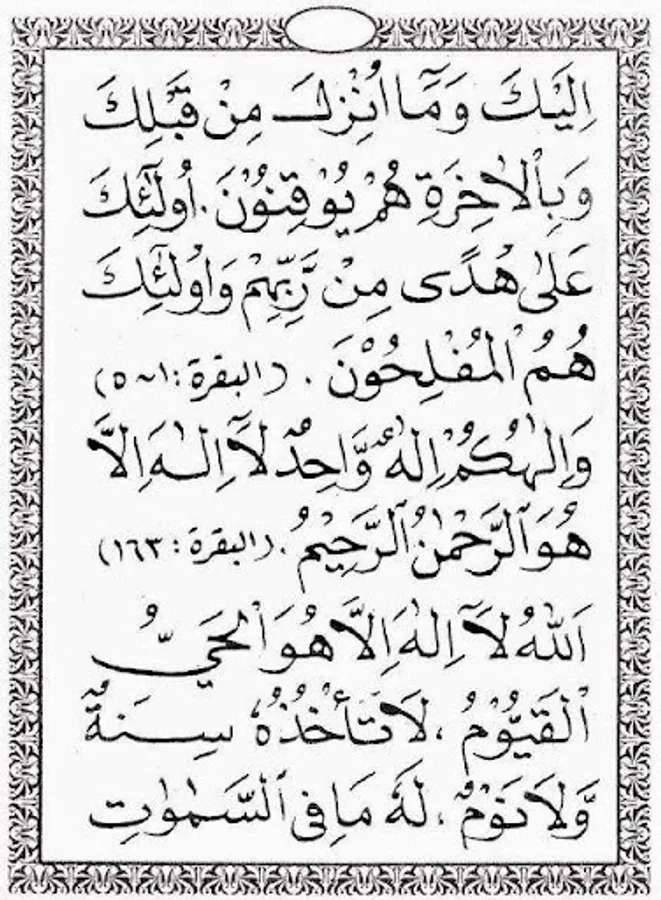 اِلَيْكَ وَمَآ اُنْزِلَ مِنْ قَبْلِكَ
وَبِالْاٰخِرَةِ هُمْ يُوْقِنُوْنَ . اُولٰٓئِكَ
عَلٰى هُدًى مِنْ رَّبِّهِمْ وَاُولٰٓئِكَ
هُمُ الْمُفْلِحُوْنَ . (البقرة : ١~٥)
وَاِلٰهُكُمْ اِلٰهٌ وَّاحِدٌ لَآ اِلٰهَ اِلَّا
هُوَ الرَّحْمٰنُ الرَّحِيْمُ . (البقرة : ١٦٣)
اَللّٰهُ لَآ اِلٰهَ اِلَّا هُوَ الْحَيُّ
الْقَيُّوْمُ ، لَا تَأْخُذُهٗ سِنَةٌ
وَّلَا نَوْمٌ ، لَهٗ مَا فِى السَّمٰوٰتِ